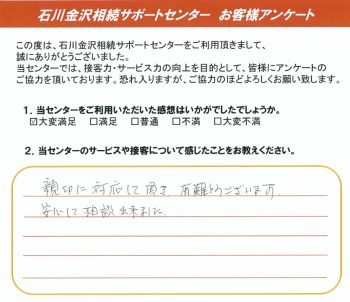 石川金沢相続サポートセンター お客様アンケート
この度は、石川金沢相続サポートセンターをご利用頂きまして、
誠にありがとうございました。
当センターでは、接客力・サービス力の向上を目的として、皆様にアンケートの
ご協力を頂いております。恐れ入りますが、ご協力のほどよろしくお願い致します。
1．当センターをご利用いただいた感想はいかがでしたでしょうか。
☑大変満足 □満足 □普通 □不満 □大変不満
2．当センターのサービスや接客について感じたことをお教えください。
親切に対応して頂き、有難うございます。
安心して相談出来ました。